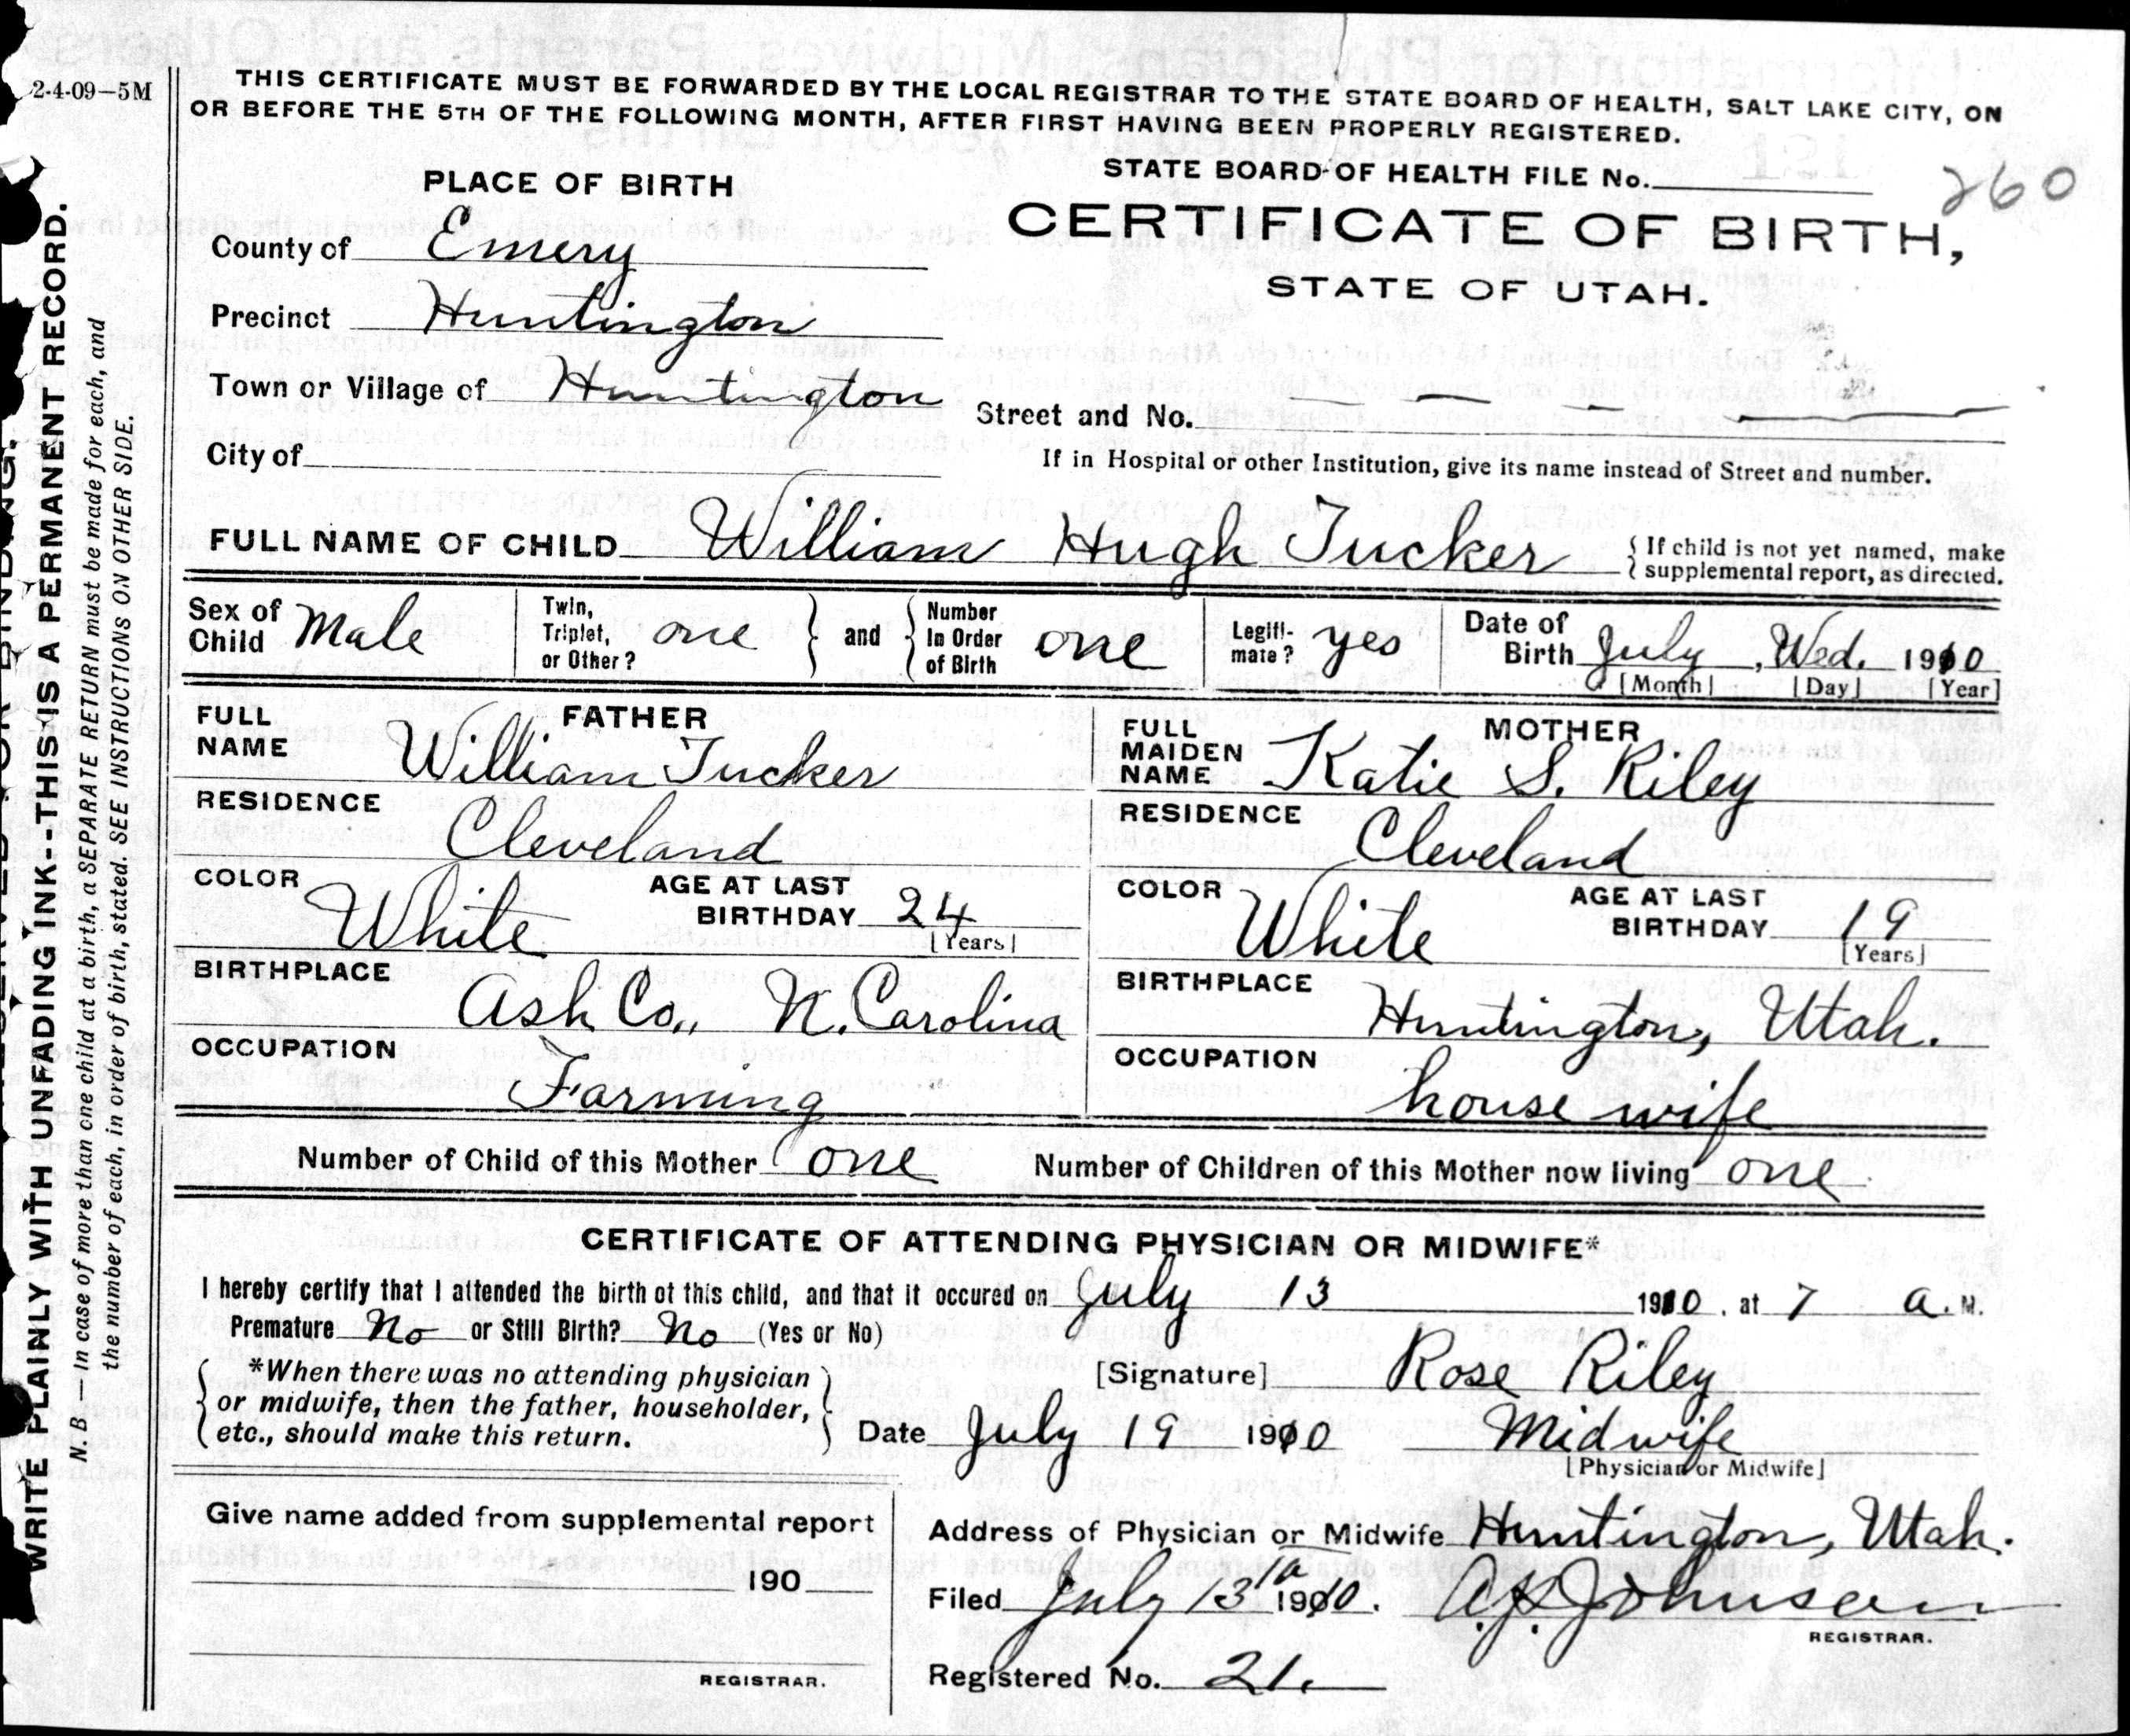 2-4-09—5M
THIS CERTIFICATE MUST BE FORWARDED BY THE LOCAL REGISTRAR TO THE STATE BOARD OF HEALTH, SALT LAKE CITY, ON
OR BEFORE THE 5TH OF THE FOLLOWING MONTH, AFTER FIRST HAVING BEEN PROPERLY REGISTERED.
STATE BOARD OF HEALTH FILE No.
260
PLACE OF BIRTH
CERTIFICATE OF BIRTH,
STATE OF UTAH.
County of Emery
Precinct Huntington
Town or Village of Huntington
Street and No. — — — —
City of
If in Hospital or other Institution, give its name instead of Street and number.
FULL NAME OF CHILD William Hugh Tucker
{ If child is not yet named, make
supplemental report, as directed.
Sex of Child Male
Twin, Triplet, or Other? one } and { Number In Order of Birth one
Legiti-mate? yes
Date of Birth July, Wed. 1910
[Month] [Day] [Year]
FATHER
FULL NAME William Tucker
RESIDENCE Cleveland
COLOR White
AGE AT LAST BIRTHDAY 24
[Years]
BIRTHPLACE Ash Co., N. Carolina
OCCUPATION Farming
MOTHER
FULL MAIDEN NAME Katie S. Riley
RESIDENCE Cleveland
COLOR White
AGE AT LAST BIRTHDAY 19
[Years]
BIRTHPLACE Huntington, Utah.
OCCUPATION house wife
Number of Child of this Mother one
Number of Children of this Mother now living one
CERTIFICATE OF ATTENDING PHYSICIAN OR MIDWIFE*
I hereby certify that I attended the birth of this child, and that it occured on July 13 1910, at 7 a. M.
Premature No or Still Birth? No (Yes or No)
*When there was no attending physician
or midwife, then the father, householder,
etc., should make this return.
[Signature] Rose Riley
Date July 19 1910 Midwife
[Physician or Midwife]
Give name added from supplemental report
190
REGISTRAR.
Address of Physician or Midwife Huntington, Utah.
Filed July 13 1910. Johnson
REGISTRAR.
Registered No. 21.
WRITE PLAINLY WITH UNFADING INK--THIS IS A PERMANENT RECORD.
N. B.—In case of more than one child at a birth, a SEPARATE RETURN must be made for each, and
the number of each, in order of birth, stated. SEE INSTRUCTIONS ON OTHER SIDE.